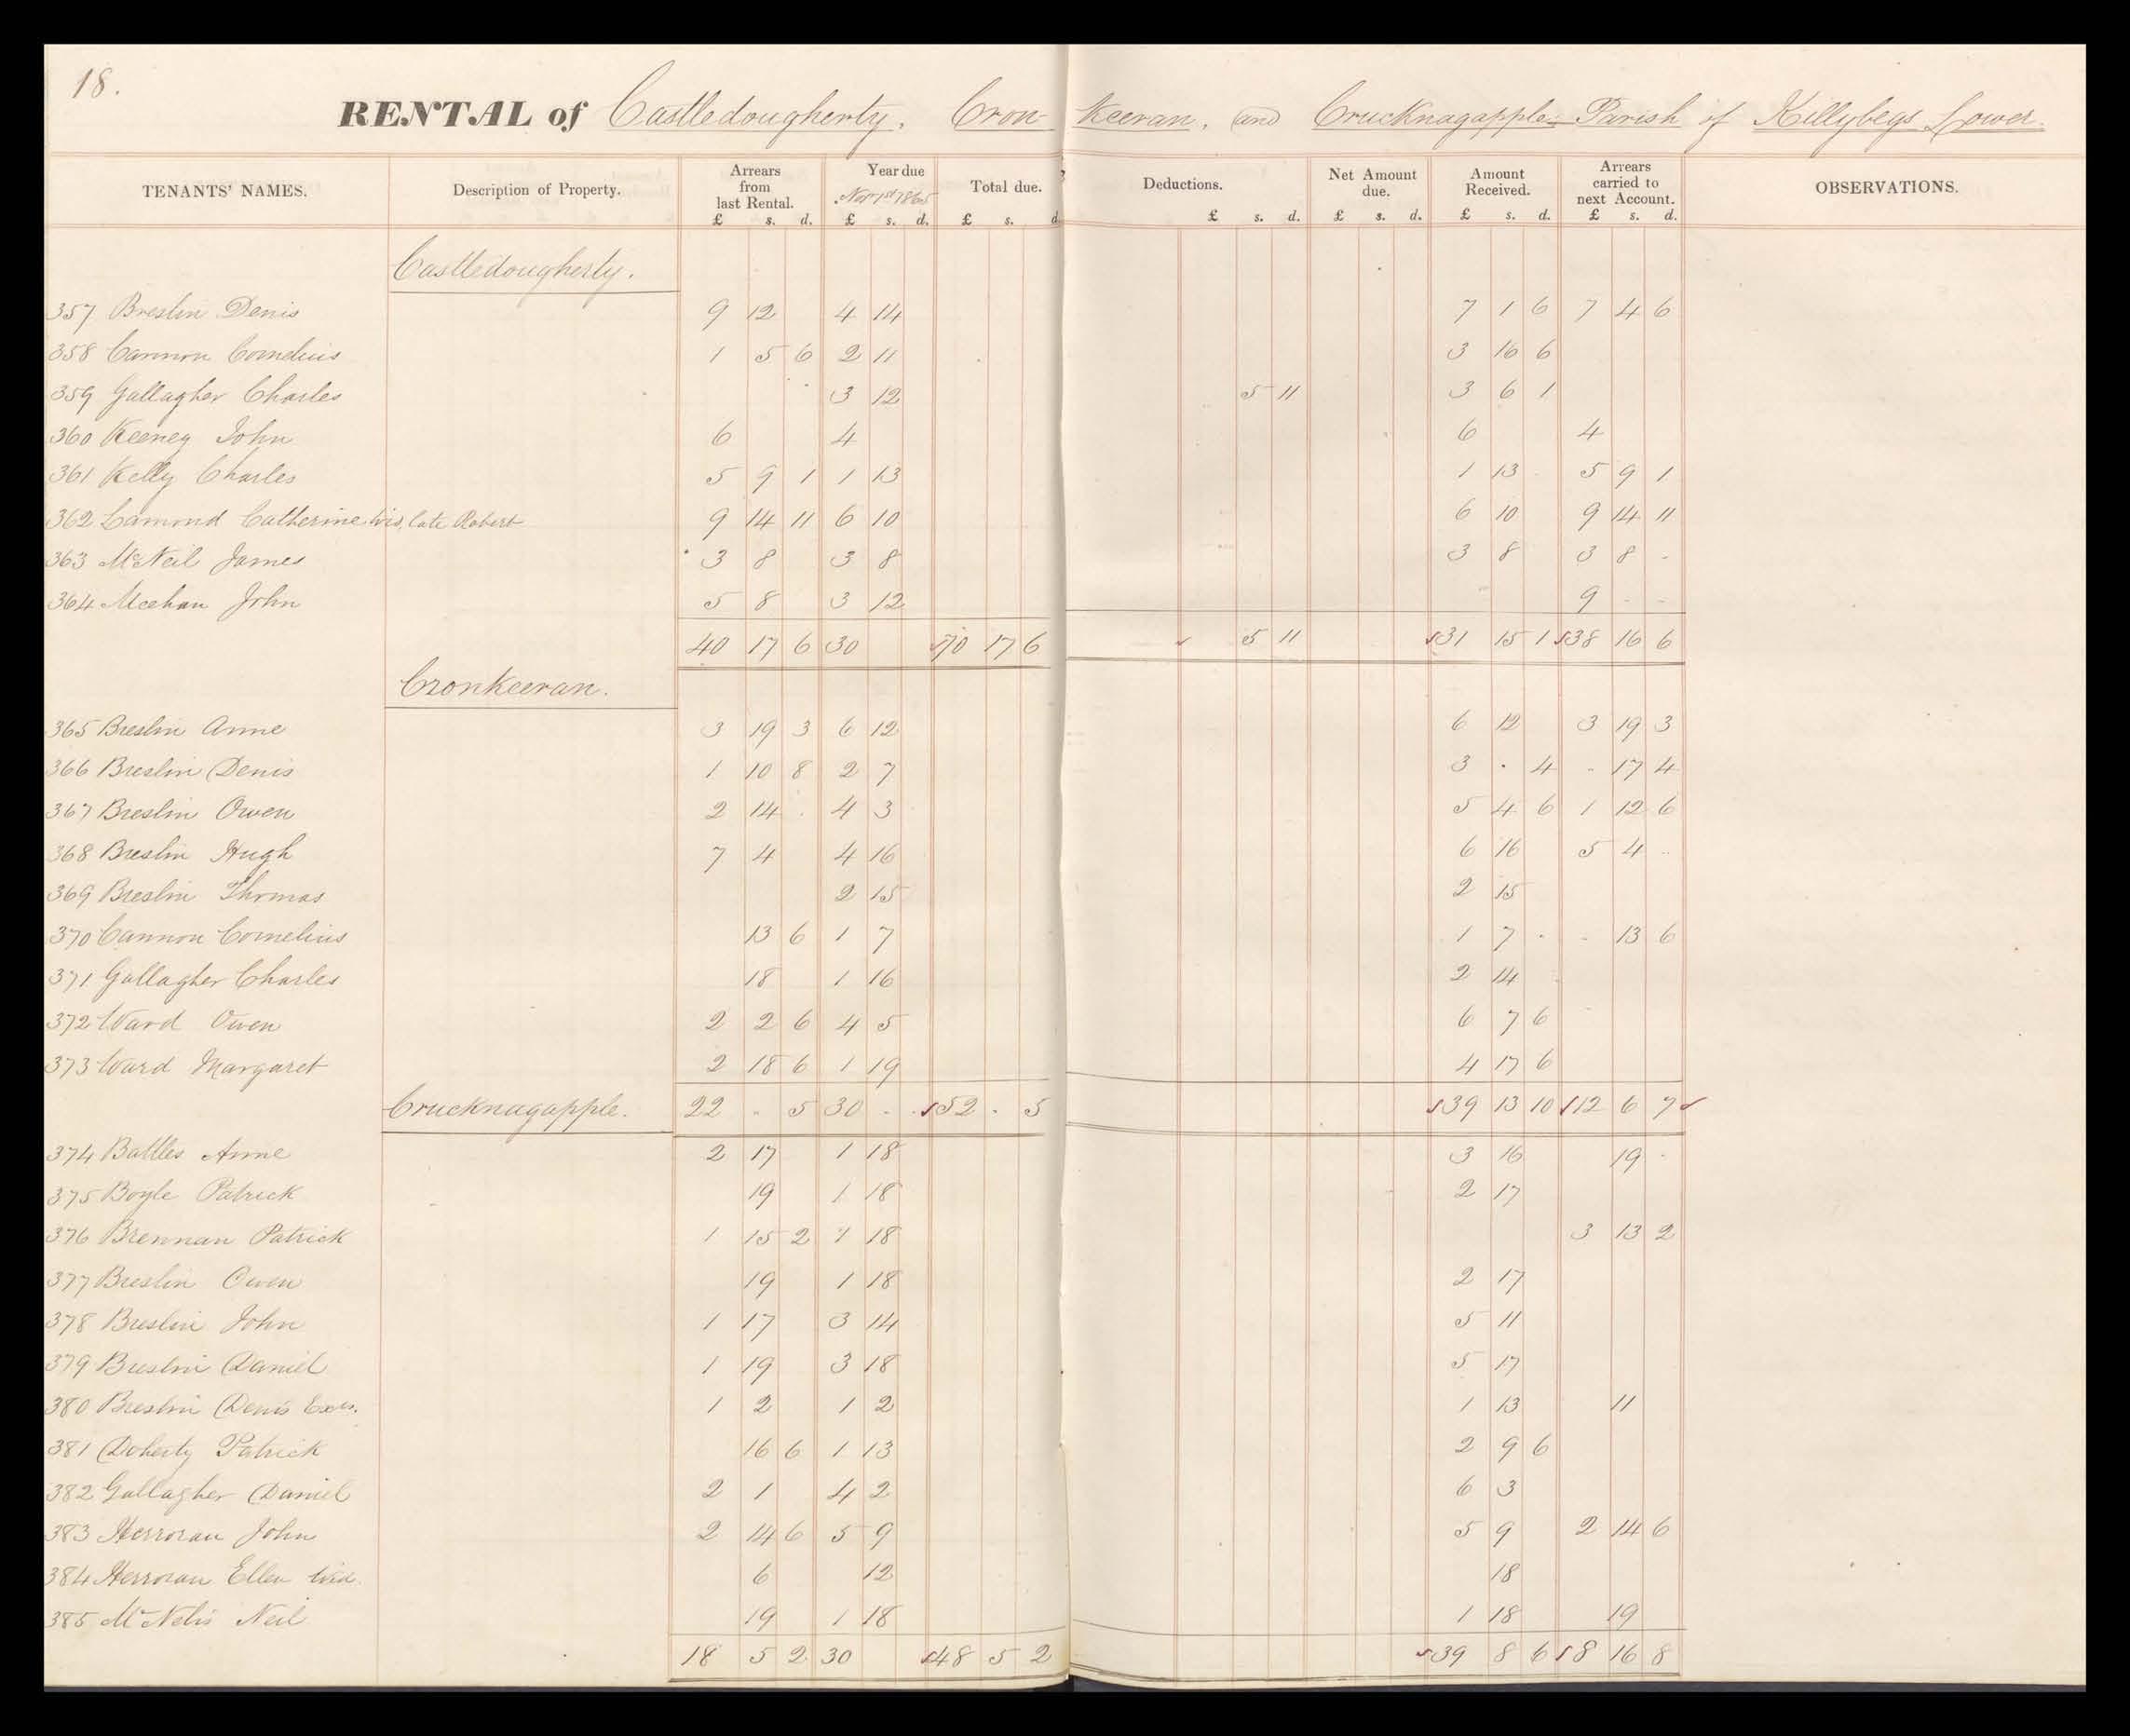 18.
RENTAL of Castledougherty, Cronkeeran, and Crucknagapple - Parish of Killybegs Lower.
TENANTS' NAMES. Description of Property. Arrears from last Rental. Year due Nov 1st 1865 Total due. Deductions. Net Amount due. Amount Received. Arrears carried to next Account. OBSERVATIONS.
£ s. d. £ s. d. £ s. d. £ s. d. £ s. d. £ s. d. £ s. d.
Castledougherty.
357 Breslin Denis 9 12 4 14 7 1 6 7 4 6
358 Cannon Cornelius 1 5 6 2 11 3 16 6
359 Gallagher Charles 3 12 5 11 3 6 1
360 Keeney John 6 4 6 4
361 Kelly Charles 5 9 1 1 13 1 13 - 5 9 1
362 Lamond Catherine Wid. late Robert 9 14 11 6 10 6 10 9 14 11
363 McNeil James 3 8 3 8 3 8 3 8 -
364 Meehan John 5 8 3 12 9 - -
40 17 6 30 70 17 6 5 11 31 15 1 38 16 6
Cronkeeran.
365 Breslin Anne 3 19 3 6 12 6 12 3 19 3
366 Breslin Denis 1 10 8 2 7 3 . 4 - 17 4
367 Breslin Owen 2 14 . 4 3 5 4 6 1 12 6
368 Breslin Hugh 7 4 4 16 6 16 5 4 -
369 Breslin Thomas 2 15 2 15
370 Cannon Cornelius 13 6 1 7 1 7 . - 13 6
371 Gallagher Charles 18 1 16 2 14
372 Ward Owen 2 2 6 4 5 6 7 6
373 Ward Margaret 2 18 6 1 19 4 17 6
22 - 5 30 - - 52 - 5 39 13 10 12 6 7
Crucknagapple.
374 Battles Anne 2 17 1 18 3 16 19 -
375 Boyle Patrick 19 1 18 2 17
376 Brennan Patrick 1 15 2 1 18 3 13 2
377 Breslin Owen 19 1 18 2 17
378 Breslin John 1 17 3 14 5 11
379 Breslin Daniel 1 19 3 18 5 17
380 Breslin Denis Exrs. 1 2 1 2 1 13 11
381 Doherty Patrick 16 6 1 13 2 9 6
382 Gallagher Daniel 2 1 4 2 6 3
383 Herroran John 2 14 6 5 9 5 9 2 14 6
384 Herroran Ellen Wid. 6 12 18
385 McNelis Neil 19 1 18 1 18 19
18 5 2 30 48 5 2 39 8 6 8 16 8